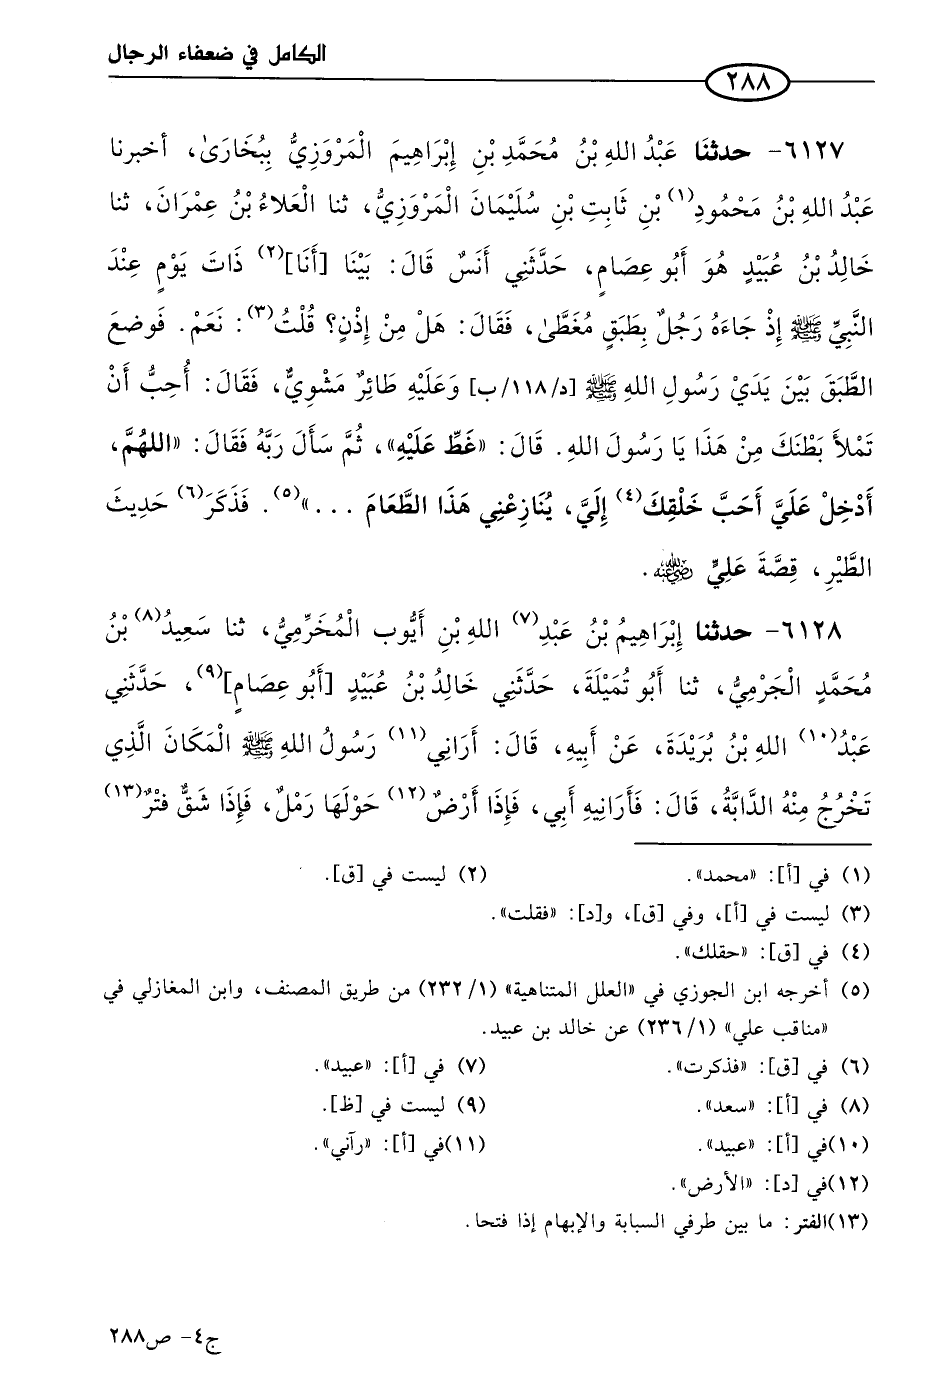 الكامل في ضعفاء الرجال
٢٨٨
٦١٢٧- حدثنَا عَبْدُ اللهِ بْنُ مُحَمَّدِ بْنِ إِبْرَاهِيمَ الْمَرْوَزِيُّ بِبُخَارَىٰ، أخبرنا
عَبْدُ اللهِ بْنُ مَحْمُودِ(١) بْنِ ثَابِتِ بْنِ سُلَيْمَانَ الْمَرْوَزِيُّ، ثنا الْعَلاءُ بْنُ عِمْرَانَ، ثنا
خَالِدُ بْنُ عُبَيْدٍ هُوَ أَبُو عِصَامٍ، حَدَّثَنِي أَنَسٌ قَالَ: بَيْنَا [أَنَا](٢) ذَاتَ يَوْمٍ عِنْدَ
النَّبِيِّ ﷺ إِذْ جَاءَهُ رَجُلٌ بِطَبَقٍ مُغَطَّىٰ، فَقَالَ: هَلْ مِنْ إِذْنٍ؟ قُلْتُ(٣): نَعَمْ. فَوضعَ
الطَّبَقَ بَيْنَ يَدَيْ رَسُولِ اللهِ ﷺ [د/١١٨/ب] وَعَلَيْهِ طَائِرٌ مَشْوِيٌّ، فَقَالَ: أُحِبُّ أَنْ
تَمْلأَ بَطْنَكَ مِنْ هَذَا يَا رَسُولَ اللهِ. قَالَ: «غَطِّ عَلَيْهِ»، ثُمَّ سَأَلَ رَبَّهُ فَقَالَ: «اللهُمَّ،
أَدْخِلْ عَلَيَّ أَحَبَّ خَلْقِكَ(٤) إِلَيَّ، يُنَازِعْنِي هَذَا الطَّعَامَ ...»(٥). فَذَكَرَ(٦) حَدِيثَ
الطَّيْرِ، قِصَّةَ عَلِيٍّ رضي الله عنه.
٦١٢٨- حدثنا إِبْرَاهِيمُ بْنُ عَبْدِ(٧) اللهِ بْنِ أَيُّوبَ الْمُخَرِّمِيُّ، ثنا سَعِيدُ(٨) بْنُ
مُحَمَّدٍ الْجَرْمِيُّ، ثنا أَبُو تُمَيْلَةَ، حَدَّثَنِي خَالِدُ بْنُ عُبَيْدٍ [أَبُو عِصَامٍ](٩)، حَدَّثَنِي
عَبْدُ(١٠) اللهِ بْنُ بُرَيْدَةَ، عَنْ أَبِيهِ، قَالَ: أَرَانِي(١١) رَسُولُ اللهِ ﷺ الْمَكَانَ الَّذِي
تَخْرُجُ مِنْهُ الدَّابَّةُ، قَالَ: فَأَرَانِيهِ أَبِي، فَإِذَا أَرْضٌ(١٢) حَوْلَهَا رَمْلٌ، فَإِذَا شَقٌّ فتْرٌ(١٣)
(١) في [أ]: «محمد». (٢) ليست في [ق].
(٣) ليست في [أ]، وفي [ق]، و[د]: «فقلت».
(٤) في [ق]: «حقلك».
(٥) أخرجه ابن الجوزي في «العلل المتناهية» (١/ ٢٣٢) من طريق المصنف، وابن المغازلي في
«مناقب علي» (١/ ٢٣٦) عن خالد بن عبيد.
(٦) في [ق]: «فذكرت». (٧) في [أ]: «عبيد».
(٨) في [أ]: «سعد». (٩) ليست في [ظ].
(١٠)في [أ]: «عبيد». (١١)في [أ]: «رآني».
(١٢)في [د]: «الأرض».
(١٣)الفتر: ما بين طرفي السبابة والإبهام إذا فتحا.
ج٤- ص٢٨٨